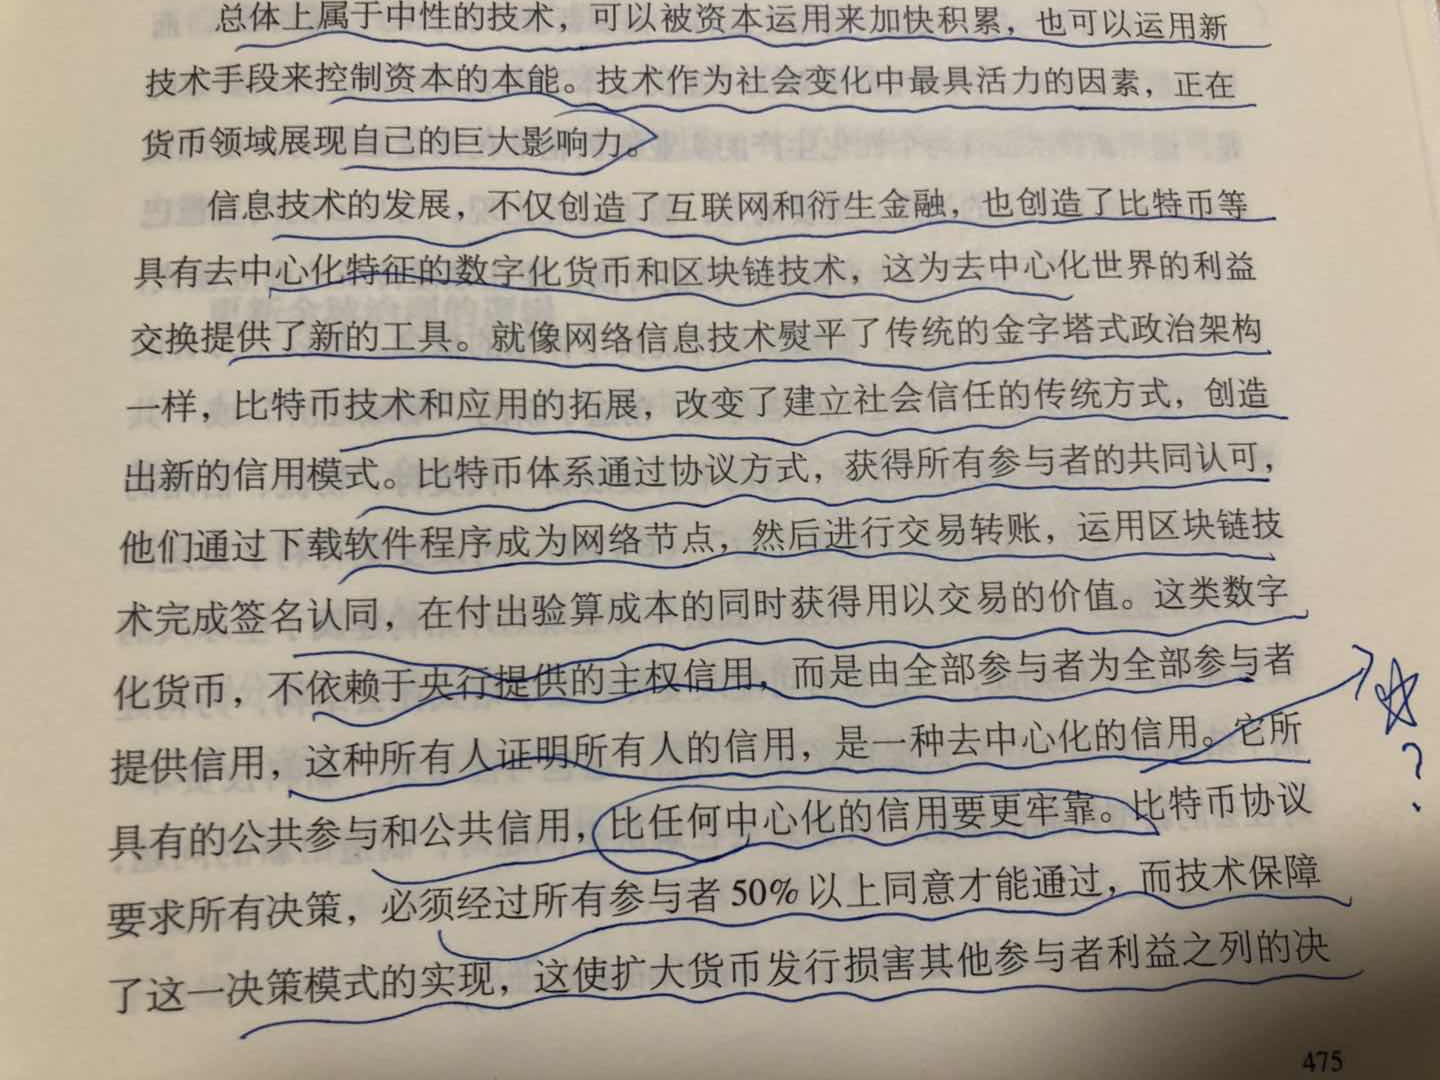 总体上属于中性的技术，可以被资本运用来加快积累，也可以运用新
技术手段来控制资本的本能。技术作为社会变化中最具活力的因素，正在
货币领域展现自己的巨大影响力。
信息技术的发展，不仅创造了互联网和衍生金融，也创造了比特币等
具有去中心化特征的数字化货币和区块链技术，这为去中心化世界的利益
交换提供了新的工具。就像网络信息技术熨平了传统的金字塔式政治架构
一样，比特币技术和应用的拓展，改变了建立社会信任的传统方式，创造
出新的信用模式。比特币体系通过协议方式，获得所有参与者的共同认可，
他们通过下载软件程序成为网络节点，然后进行交易转账，运用区块链技
术完成签名认同，在付出验算成本的同时获得用以交易的价值。这类数字
化货币，不依赖于央行提供的主权信用，而是由全部参与者为全部参与者
提供信用，这种所有人证明所有人的信用，是一种去中心化的信用。它所
具有的公共参与和公共信用，比任何中心化的信用要更牢靠。比特币协议
要求所有决策，必须经过所有参与者50%以上同意才能通过，而技术保障
了这一决策模式的实现，这使扩大货币发行损害其他参与者利益之列的决
?
475